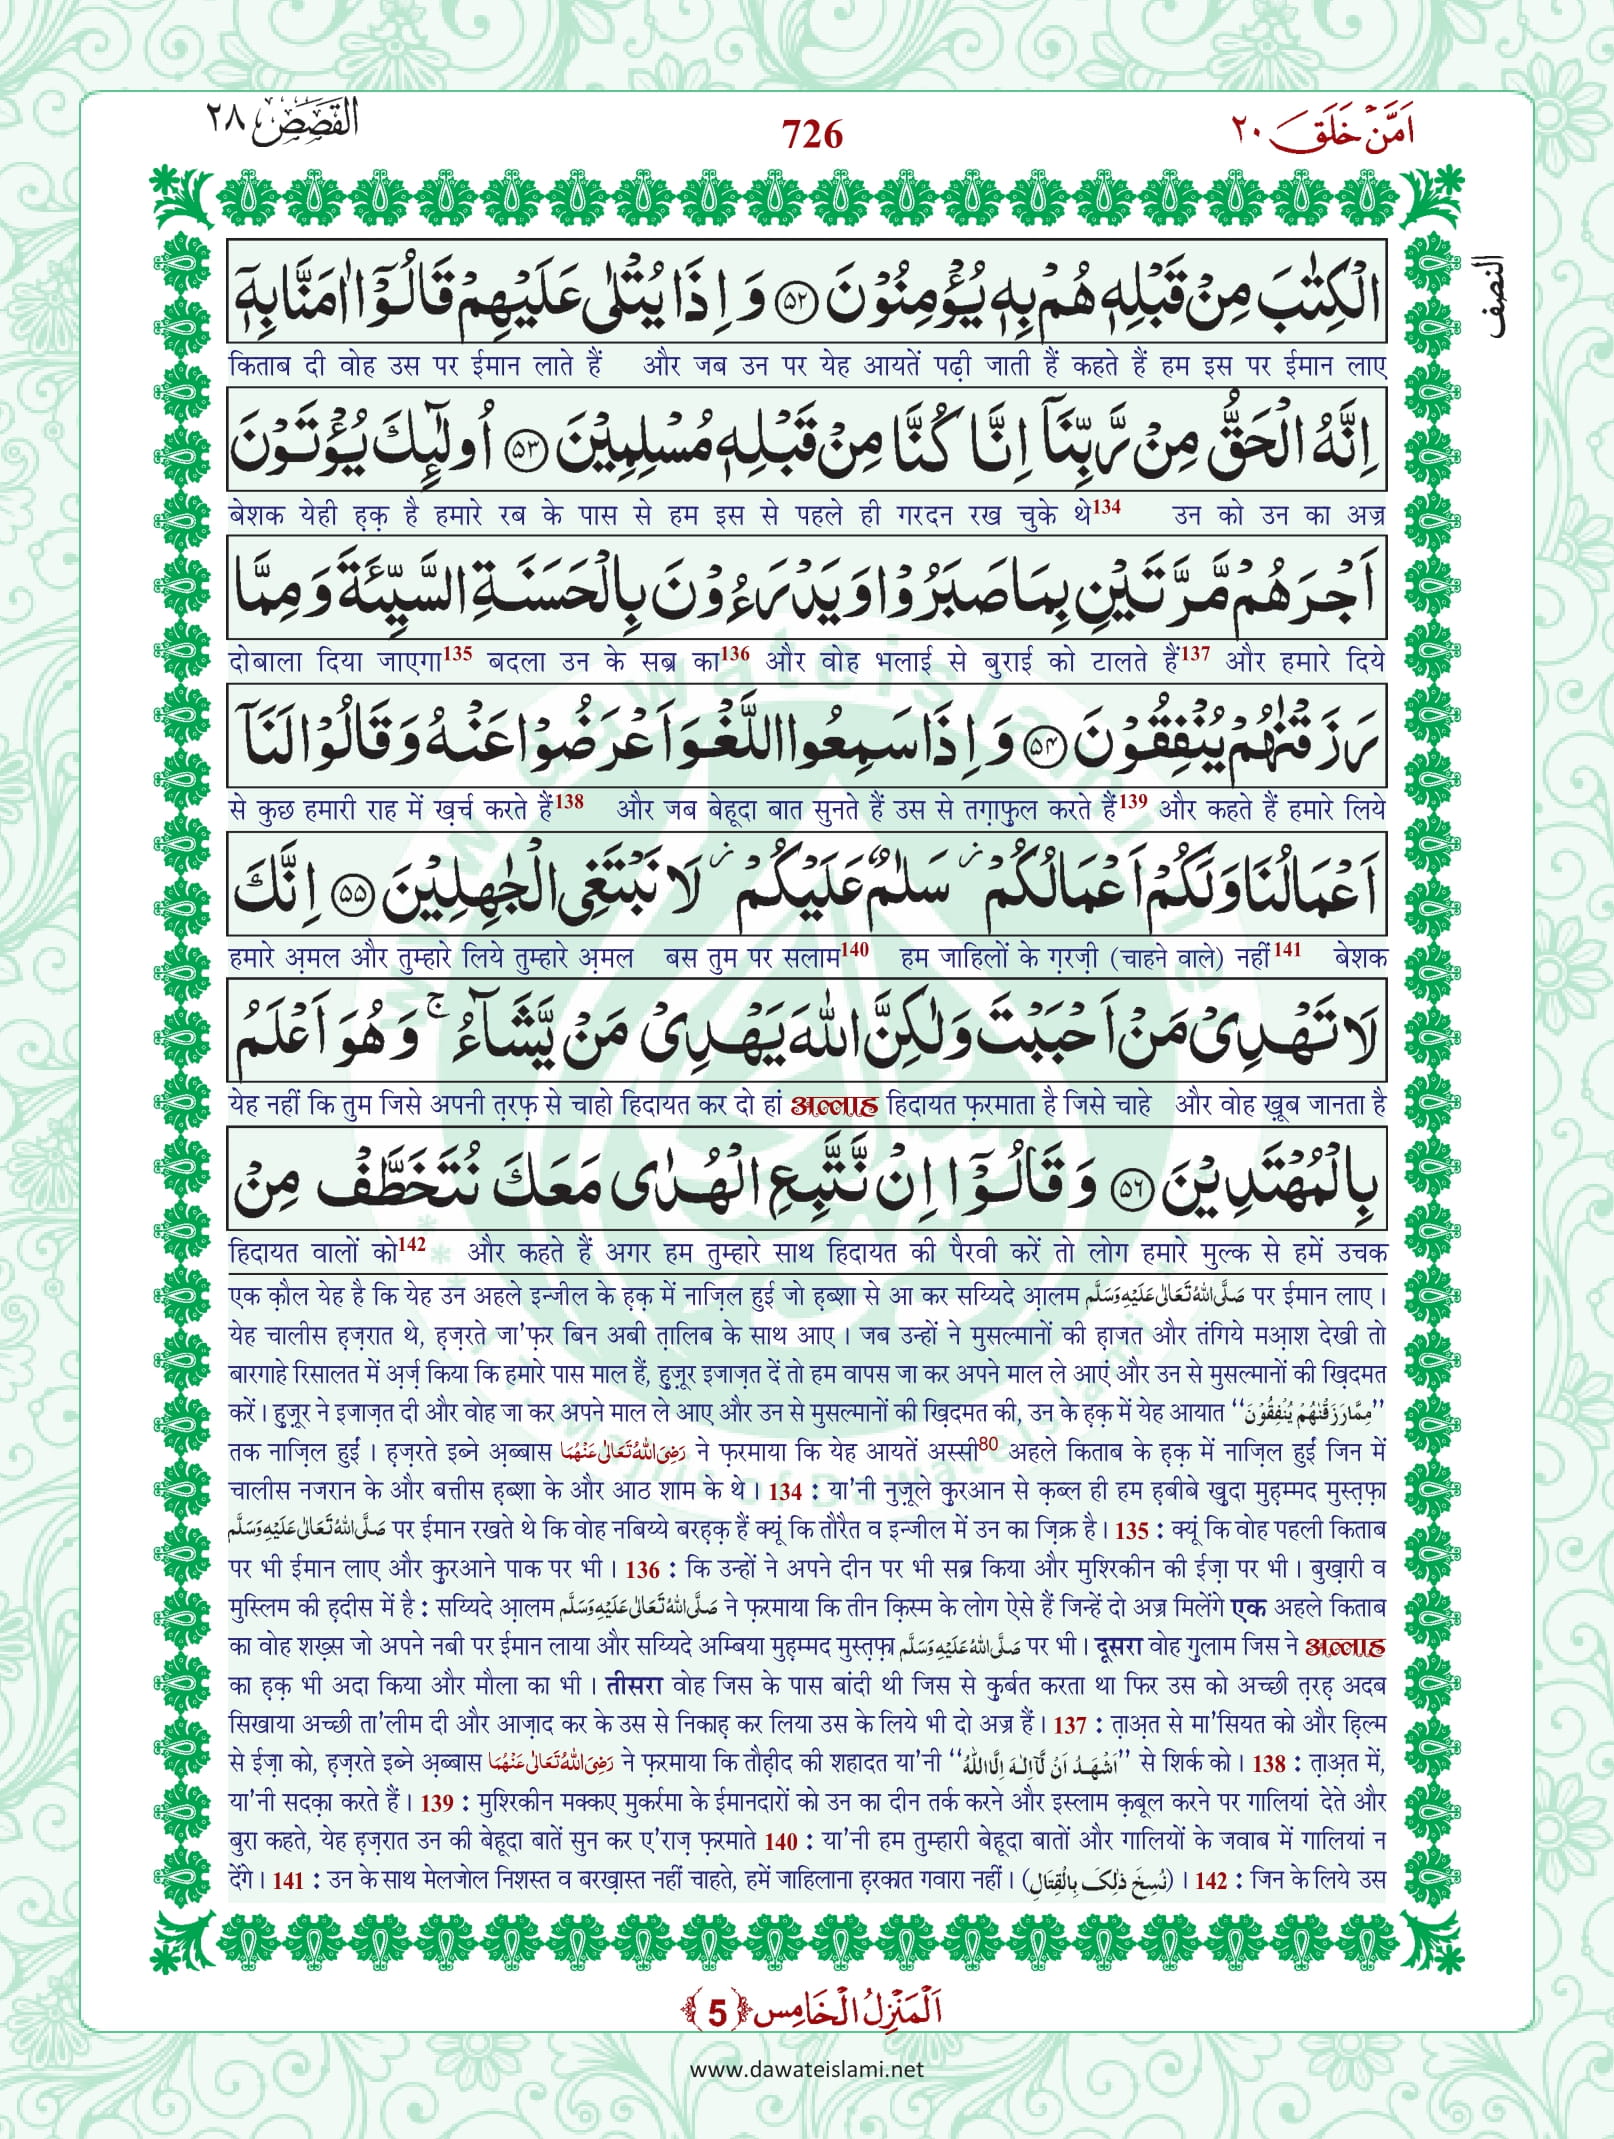 القَصَص ٢٨
726
اَمَّنْ خَلَقَ ٢٠
النصف
الْكِتٰبَ مِنْ قَبْلِهٖ هُمْ بِهٖ یُؤْمِنُوْنَ ﴿۵۲﴾ وَ اِذَا یُتْلٰى عَلَیْهِمْ قَالُوْۤا اٰمَنَّا بِهٖۤ
किताब दी वोह उस पर ईमान लाते हैं और जब उन पर येह आयतें पढ़ी जाती हैं कहते हैं हम इस पर ईमान लाए
اِنَّهُ الْحَقُّ مِنْ رَّبِّنَاۤ اِنَّا كُنَّا مِنْ قَبْلِهٖ مُسْلِمِیْنَ ﴿۵۳﴾ اُولٰٓىٕكَ یُؤْتَوْنَ
बेशक येही ह़क़ है हमारे रब के पास से हम इस से पहले ही गरदन रख चुके थे134 उन को उन का अज्र
اَجْرَهُمْ مَّرَّتَیْنِ بِمَا صَبَرُوْا وَ یَدْرَءُوْنَ بِالْحَسَنَةِ السَّیِّئَةَ وَ مِمَّا
दोबाला दिया जाएगा135 बदला उन के सब्र का136 और वोह भलाई से बुराई को टालते हैं137 और हमारे दिये
رَزَقْنٰهُمْ یُنْفِقُوْنَ ﴿۵۴﴾ وَ اِذَا سَمِعُوا اللَّغْوَ اَعْرَضُوْا عَنْهُ وَ قَالُوْا لَنَاۤ
से कुछ हमारी राह में ख़र्च करते हैं138 और जब बेहूदा बात सुनते हैं उस से तग़ाफ़ुल करते हैं139 और कहते हैं हमारे लिये
اَعْمَالُنَا وَ لَكُمْ اَعْمَالُكُمْ٘ سَلٰمٌ عَلَیْكُمْ٘ لَا نَبْتَغِی الْجٰهِلِیْنَ ﴿۵۵﴾ اِنَّكَ
हमारे अ़मल और तुम्हारे लिये तुम्हारे अ़मल बस तुम पर सलाम140 हम जाहिलों के ग़रज़ी (चाहने वाले) नहीं141 बेशक
لَا تَهْدِیْ مَنْ اَحْبَبْتَ وَ لٰكِنَّ اللّٰهَ یَهْدِیْ مَنْ یَّشَآءُۚ وَ هُوَ اَعْلَمُ
येह नहीं कि तुम जिसे अपनी त़रफ़ से चाहो हिदायत कर दो हां अल्लाह हिदायत फ़रमाता है जिसे चाहे और वोह ख़ूब जानता है
بِالْمُهْتَدِیْنَ ﴿۵۶﴾ وَ قَالُوْۤا اِنْ نَّتَّبِعِ الْهُدٰى مَعَكَ نُتَخَطَّفْ مِنْ
हिदायत वालों को142 और कहते हैं अगर हम तुम्हारे साथ हिदायत की पैरवी करें तो लोग हमारे मुल्क से हमें उचक
एक क़ौल येह है कि येह उन अहले इन्जील के ह़क़ में नाज़िल हुई जो ह़ब्शा से आ कर सय्यिदे आ़लम صَلَّى اللهُ تَعَالٰى عَلَيْهِ وَسَلَّم पर ईमान लाए ।
येह चालीस ह़ज़रात थे, ह़ज़रते जा'फ़र बिन अबी त़ालिब के साथ आए । जब उन्हों ने मुसल्मानों की ह़ाजत और तंगिये मआ़श देखी तो
बारगाहे रिसालत में अ़र्ज़ किया कि हमारे पास माल हैं, ह़ुज़ूर इजाज़त दें तो हम वापस जा कर अपने माल ले आएं और उन से मुसल्मानों की ख़िदमत
करें । ह़ुज़ूर ने इजाज़त दी और वोह जा कर अपने माल ले आए और उन से मुसल्मानों की ख़िदमत की, उन के ह़क़ में येह आयात ‘‘مِمَّا رَزَقْنٰهُمْ يُنْفِقُوْنَ’’
तक नाज़िल हुईं । ह़ज़रते इब्ने अ़ब्बास رَضِىَ اللهُ تَعَالٰى عَنْهُمَا ने फ़रमाया कि येह आयतें अस्सी80 अहले किताब के ह़क़ में नाज़िल हुईं जिन में
चालीस नजरान के और बत्तीस ह़ब्शा के और आठ शाम के थे । 134 : या'नी नुज़ूले क़ुरआन से क़ब्ल ही हम ह़बीबे ख़ुदा मुह़म्मद मुस्त़फ़ा
صَلَّى اللهُ تَعَالٰى عَلَيْهِ وَسَلَّم पर ईमान रखते थे कि वोह नबिय्ये बरह़क़ हैं क्यूं कि तौरैत व इन्जील में उन का ज़िक्र है । 135 : क्यूं कि वोह पहली किताब
पर भी ईमान लाए और क़ुरआने पाक पर भी । 136 : कि उन्हों ने अपने दीन पर भी सब्र किया और मुश्रिकीन की ईज़ा पर भी । बुख़ारी व
मुस्लिम की ह़दीस में है : सय्यिदे आ़लम صَلَّى اللهُ تَعَالٰى عَلَيْهِ وَسَلَّم ने फ़रमाया कि तीन क़िस्म के लोग ऐसे हैं जिन्हें दो अज्र मिलेंगे एक अहले किताब
का वोह शख़्स जो अपने नबी पर ईमान लाया और सय्यिदे अम्बिया मुह़म्मद मुस्त़फ़ा صَلَّى اللهُ عَلَيْهِ وَسَلَّم पर भी । दूसरा वोह ग़ुलाम जिस ने अल्लाह
का ह़क़ भी अदा किया और मौला का भी । तीसरा वोह जिस के पास बांदी थी जिस से क़ुर्बत करता था फिर उस को अच्छी त़रह़ अदब
सिखाया अच्छी ता'लीम दी और आज़ाद कर के उस से निकाह़ कर लिया उस के लिये भी दो अज्र हैं । 137 : त़ाअ़त से मा'सियत को और ह़िल्म
से ईज़ा को, ह़ज़रते इब्ने अ़ब्बास رَضِىَ اللهُ تَعَالٰى عَنْهُمَا ने फ़रमाया कि तौह़ीद की शहादत या'नी ‘‘اَشْهَدُ اَنْ لَّاۤ اِلٰهَ اِلَّا اللّٰهُ’’ से शिर्क को । 138 : त़ाअ़त में,
या'नी सदक़ा करते हैं । 139 : मुश्रिकीन मक्कए मुकर्रमा के ईमानदारों को उन का दीन तर्क करने और इस्लाम क़बूल करने पर गालियां देते और
बुरा कहते, येह ह़ज़रात उन की बेहूदा बातें सुन कर ए'राज़ फ़रमाते 140 : या'नी हम तुम्हारी बेहूदा बातों और गालियों के जवाब में गालियां न
देंगे । 141 : उन के साथ मेलजोल निशस्त व बरख़ास्त नहीं चाहते, हमें जाहिलाना ह़रकात गवारा नहीं । (نُسِخَ ذٰلِكَ بِالْقِتَالِ) । 142 : जिन के लिये उस
اَلْمَنْزِلُ الْخَامِس ﴿5﴾
www.dawateislami.net